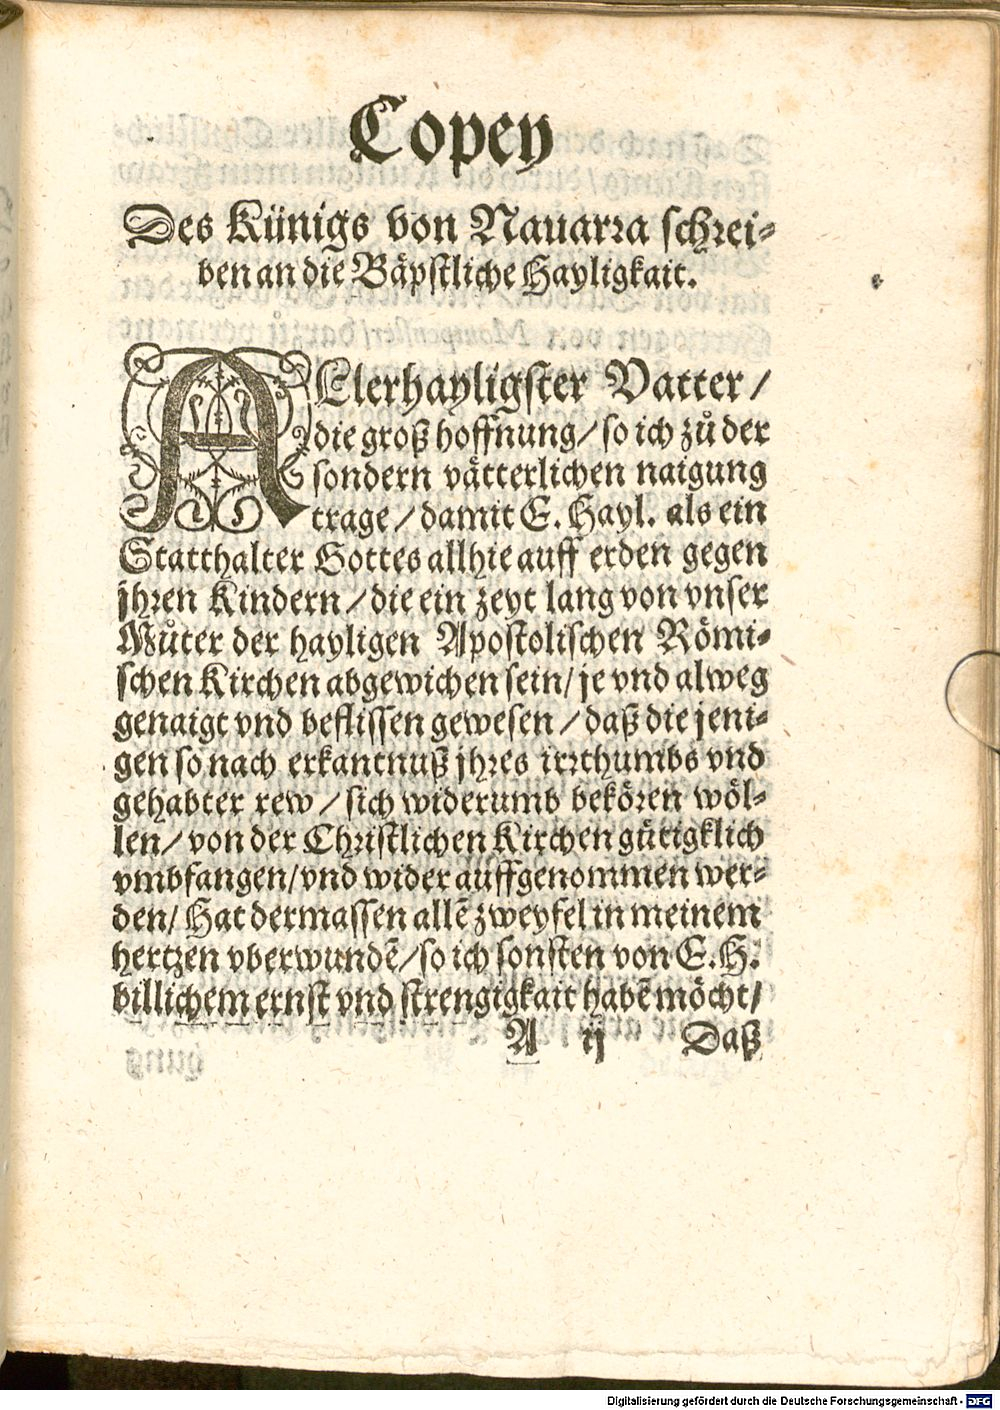 Copey
Des Künigs von Nauarra schrei-
ben an die Bäpstliche Hayligkait.
ALlerhayligster Vatter /
die groß hoffnung / so ich zů der
sondern vätterlichen naigung
trage / damit E. Hayl. als ein
Statthalter Gottes allhie auff erden gegen
jhren Kindern / die ein zeyt lang von vnser
Můter der hayligen Apostolischen Römi-
schen Kirchen abgewichen sein / je vnd alweg
genaigt vnd beflissen gewesen / daß die jeni-
gen so nach erkantnuß jhres irrthumbs vnd
gehabter rew / sich widerumb bekören wöl-
len / von der Christlichen Kirchen gütigklich
vmbfangen / vnd wider auffgenommen wer-
den / Hat dermassen allẽ zweyfel in meinem
hertzen vberwundẽ / so ich sonsten von E. H.
billichem ernst vnd strengigkait habẽ möcht /
A ij Daß
Digitalisierung gefördert durch die Deutsche Forschungsgemeinschaft - DFG